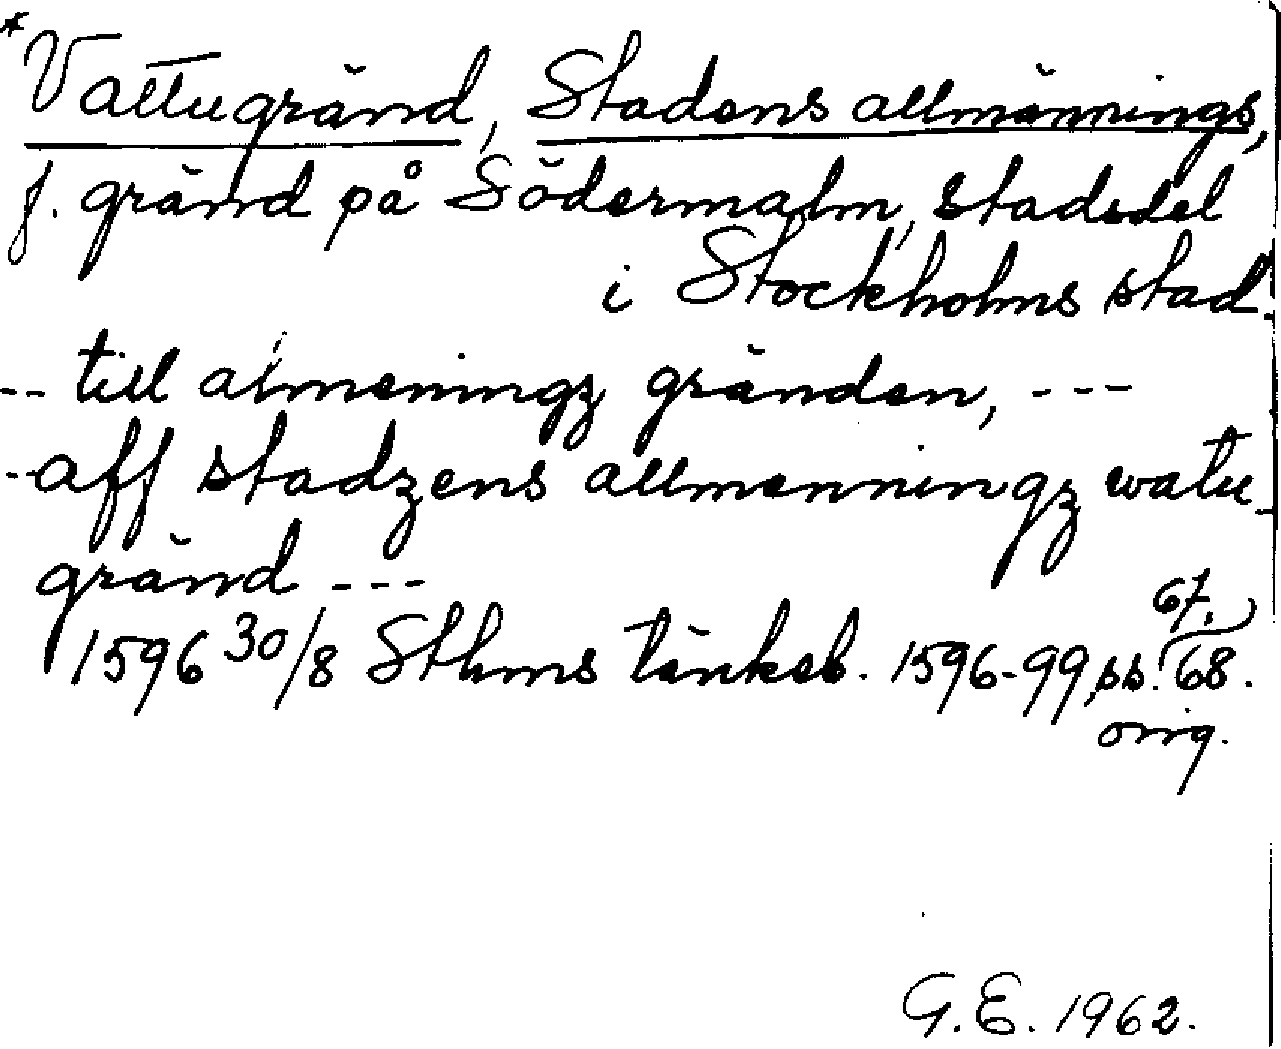 *Vattugränd, Stadens allmännings,
f. gränd på Södermalm, stadsdel
i Stockholms stad.
-- till almeningz gränden, ---
--aff stadzens allmenningz watu-
gränd ---
1596 30/8 Sthms tänkeb. 1596-99, ss. 67, 68.
orig.
G.E. 1962.